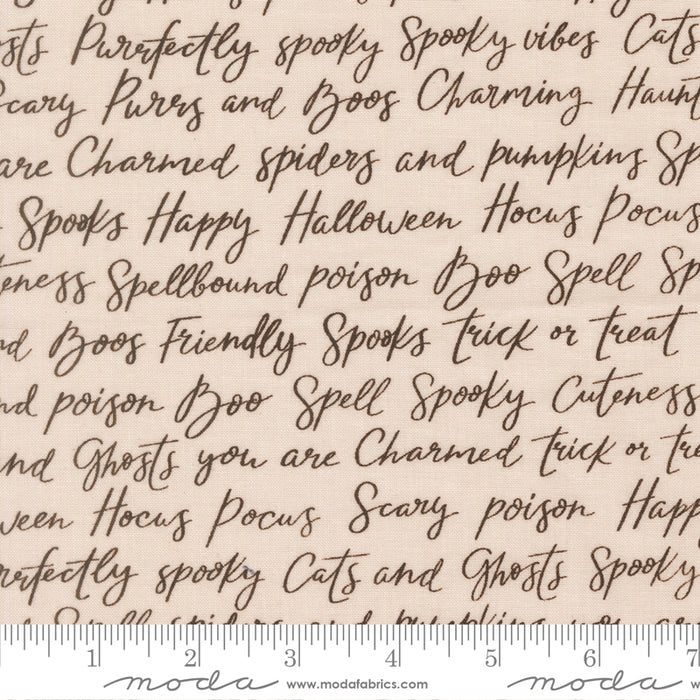 sts Purrfectly spooky Spooky vibes Cats
Scary Purrs and Boos Charming Haunt
are Charmed spiders and pumpkins Sp
Spooks Happy Halloween Hocus Pocus
teness Spellbound poison Boo Spell Sp
nd Boos Friendly Spooks trick or treat
nd poison Boo Spell Spooky Cuteness
and Ghosts you are Charmed trick or tre
ween Hocus Pocus Scary poison Happ
rrfectly spooky Cats and Ghosts Spooky
Spell spiders and pumpkins you are
1 2 3 4 5 6 7
moda www.modafabrics.com moda w